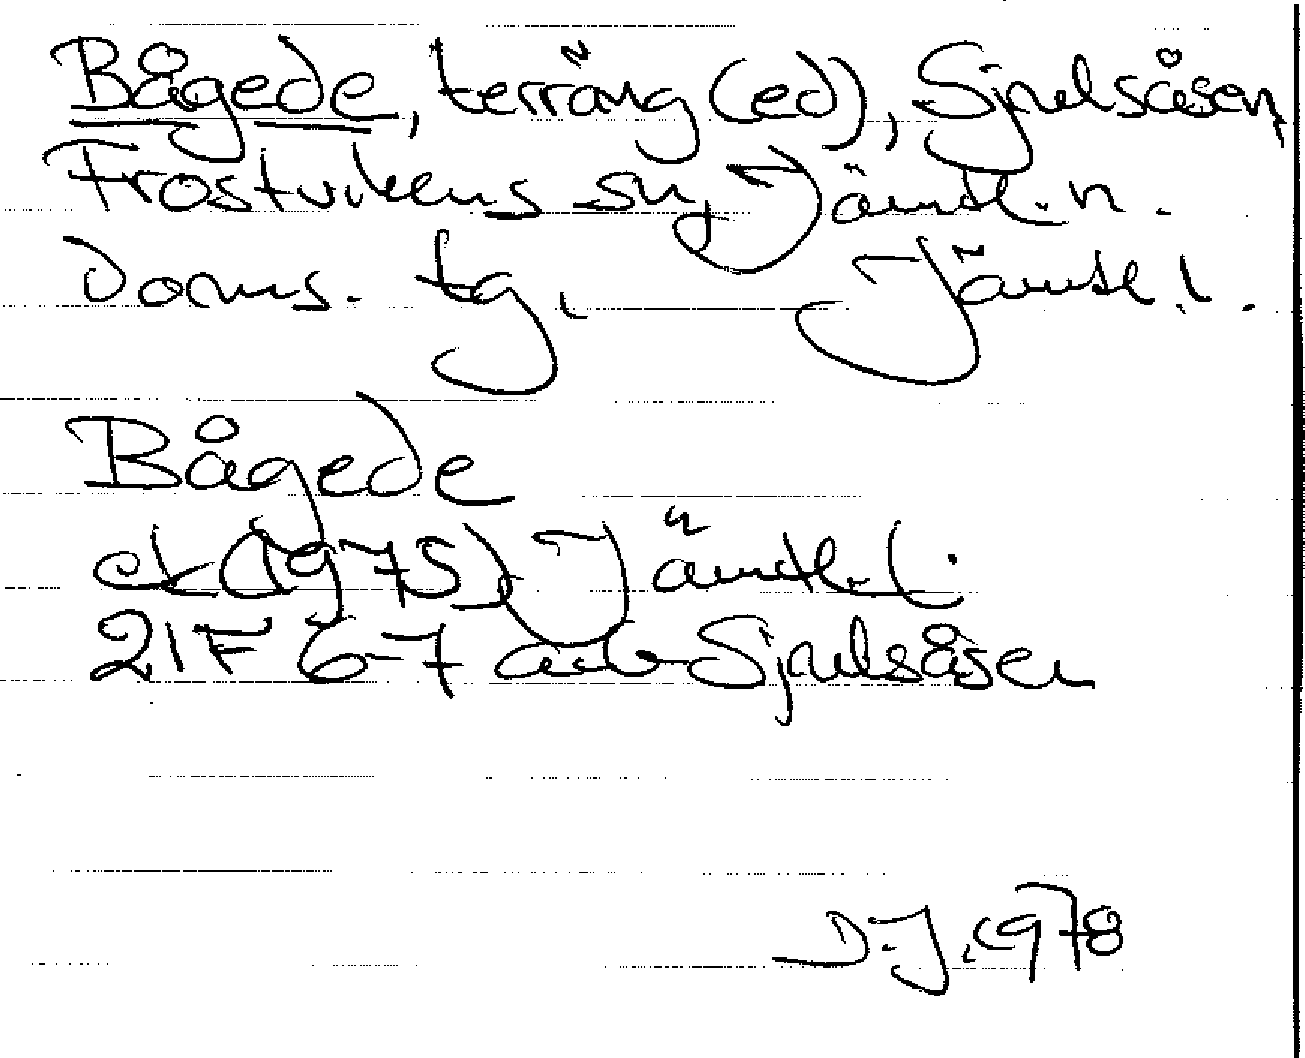 Bågede, terräng (ed), Sjulsåsen,
Frostvikens sn, Jämtl. n.
Doms. tg, Jämtl. l.
Bågede
ek (1975) Jämtl. l.
21F 6-7 a-b Sjulsåsen
D.J. 1978